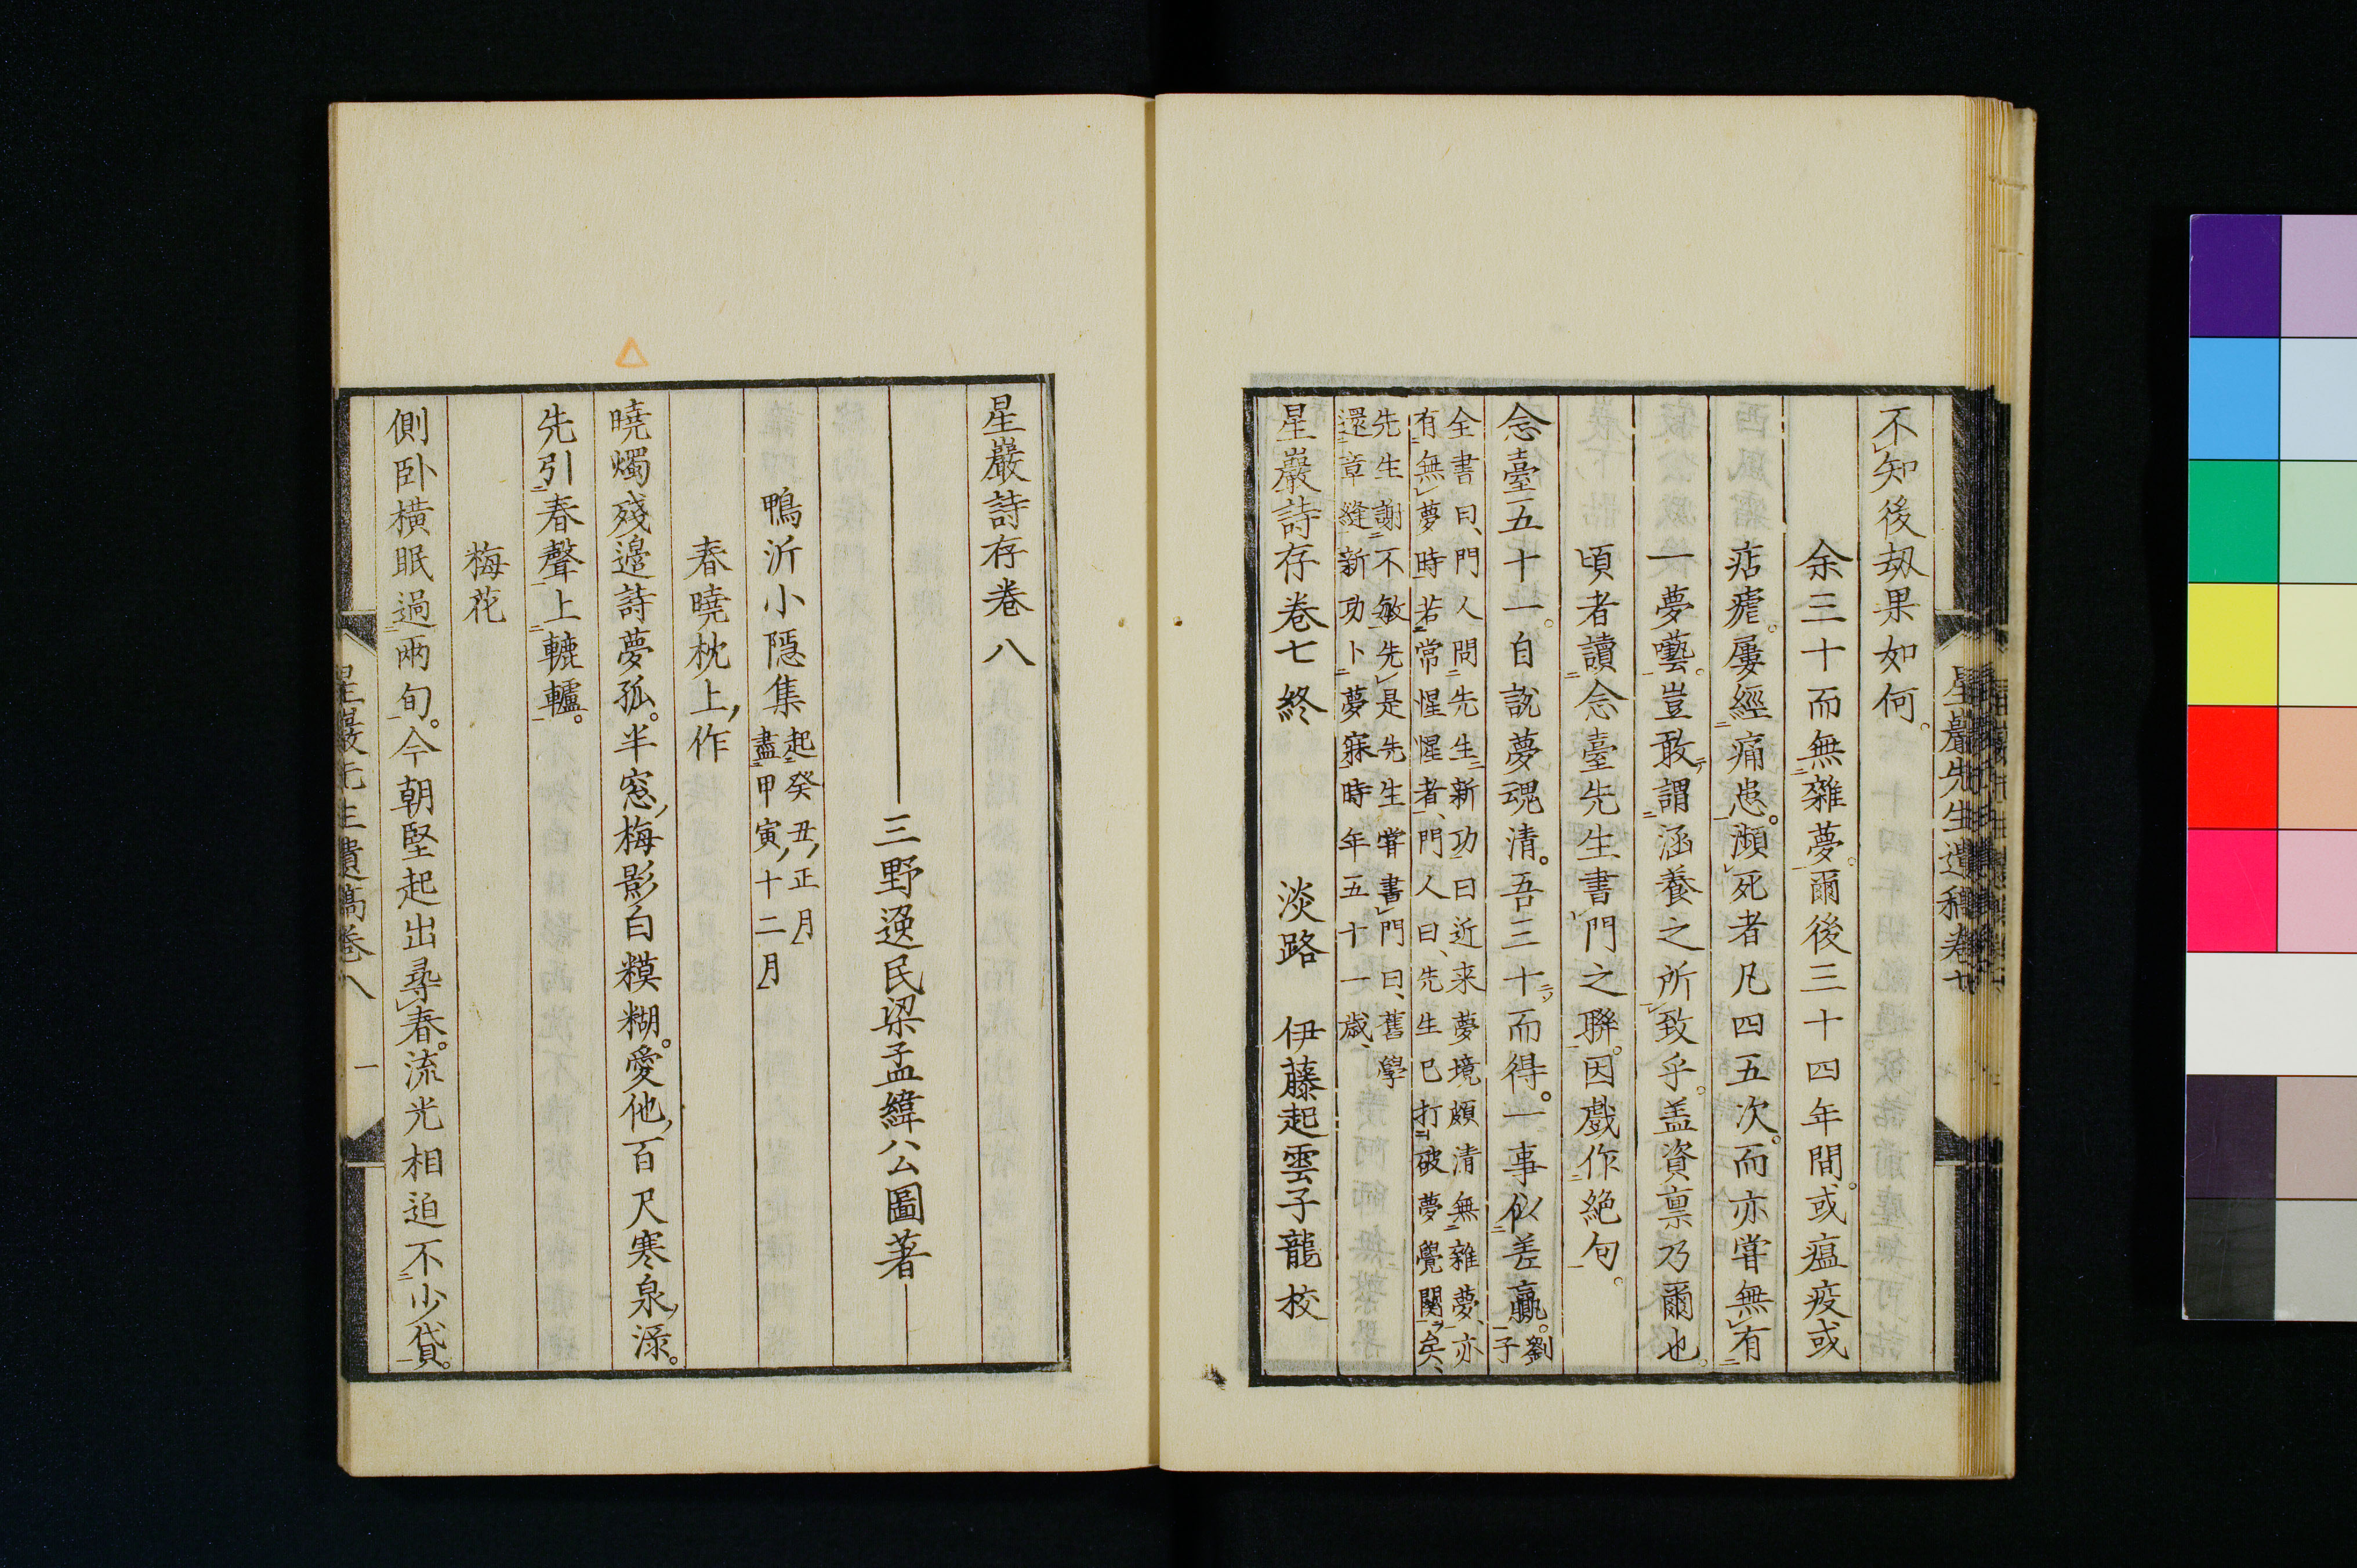 不知後劫果如何。
余三十而無雜夢。爾後三十四年間。或瘟疫或
痁瘧。屢經痛患。瀕死者凡四五次。而亦甞無有
一夢囈。豈敢謂涵養之所致乎。盖資禀乃爾也。
頃者讀念臺先生書門之聯。因戲作絶句。
念臺五十一。自說夢魂清。吾三十而得。一事似差贏。劉子
全書曰、門人問先生新功曰近来夢境頗清無雜夢、亦
有無夢時若常惺惺者、門人曰、先生已打破夢覺關矣、
先生謝不敏先是先生甞書門曰、舊學
還章縫新功卜夢寐時年五十一歲、
星巖詩存卷七終 淡路 伊藤起雲子龍校
星巖先生遺稿卷七
星巖詩存卷八
三野逸民梁孟緯公圖著
鴨沂小隱集 起癸丑正月
盡甲寅十二月
春曉枕上作
曉燭殘邊詩夢孤。半窓梅影白糢糊。愛他百尺寒泉渌。
先引春聲上轆轤。
梅花
側臥橫眠過兩旬。今朝堅起出尋春。流光相迫不少貸。
星巖先生遺稿卷八 一